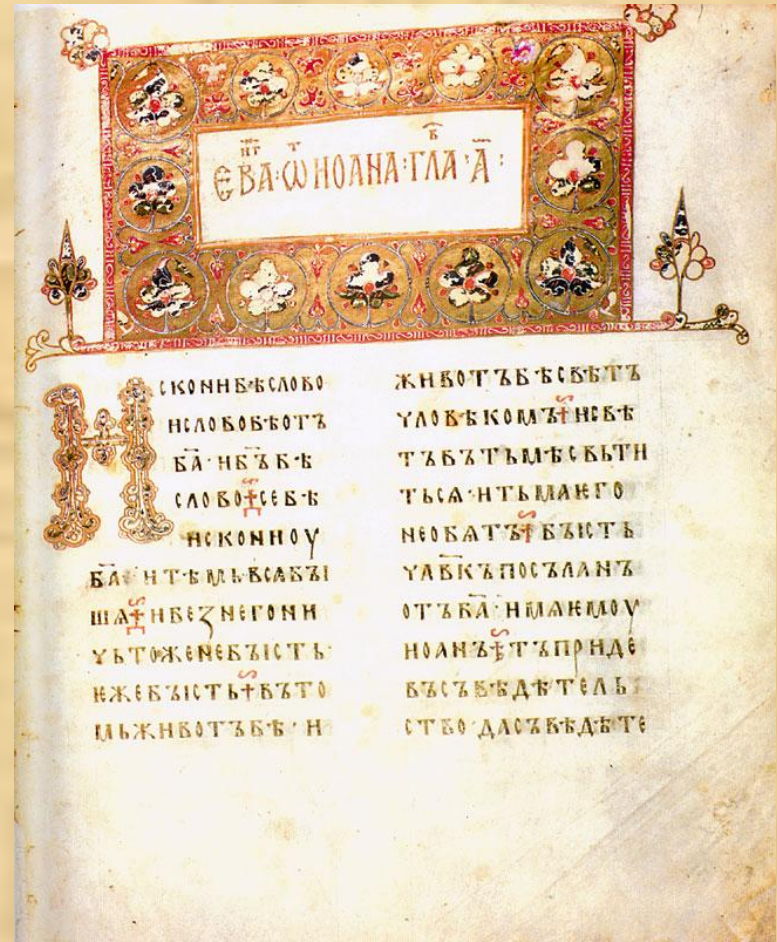 ЕВАⷩ҇Гⷢ·Ѿ ИОАНА·ГЛАⷡ·А҃:
ИСКОНИБѢСЛОВО
ИСЛОВОБѢОТЪ
БА҃·ИБЪ҃БѢ
СЛОВО+СЕБѢ
ИСКОНИОУ
БА҃·ИТѢМЬВСꙖБЪІ
ШѦ+ИБЕЗНЕГОНИ
ЧЬТОЖЕНЕБЪІСТЬ·
ѤЖЕБЪІСТЬ+ВЪТО
МЬЖИВОТЪБѢ·И
ЖИВОТЪБѢСВѢТЪ
ЧЛОВѢКОМЪ+ИСВѢ
ТЪВЪТЬМѢСВЬТИ
ТЬСѦ·ИТЬМАѤГО
НЕОБѦТЪ+БЪІСТЬ
ЧЛВ҃КЪПОСЪЛАНЪ
ОТЪБА҃·ИМѦѤМОУ
ИОАНЪ+ТЪПРИДЕ
ВЪСЪВѢДѢТЕЛЬ
СТВО·ДАСЪВѢДѢТЕ